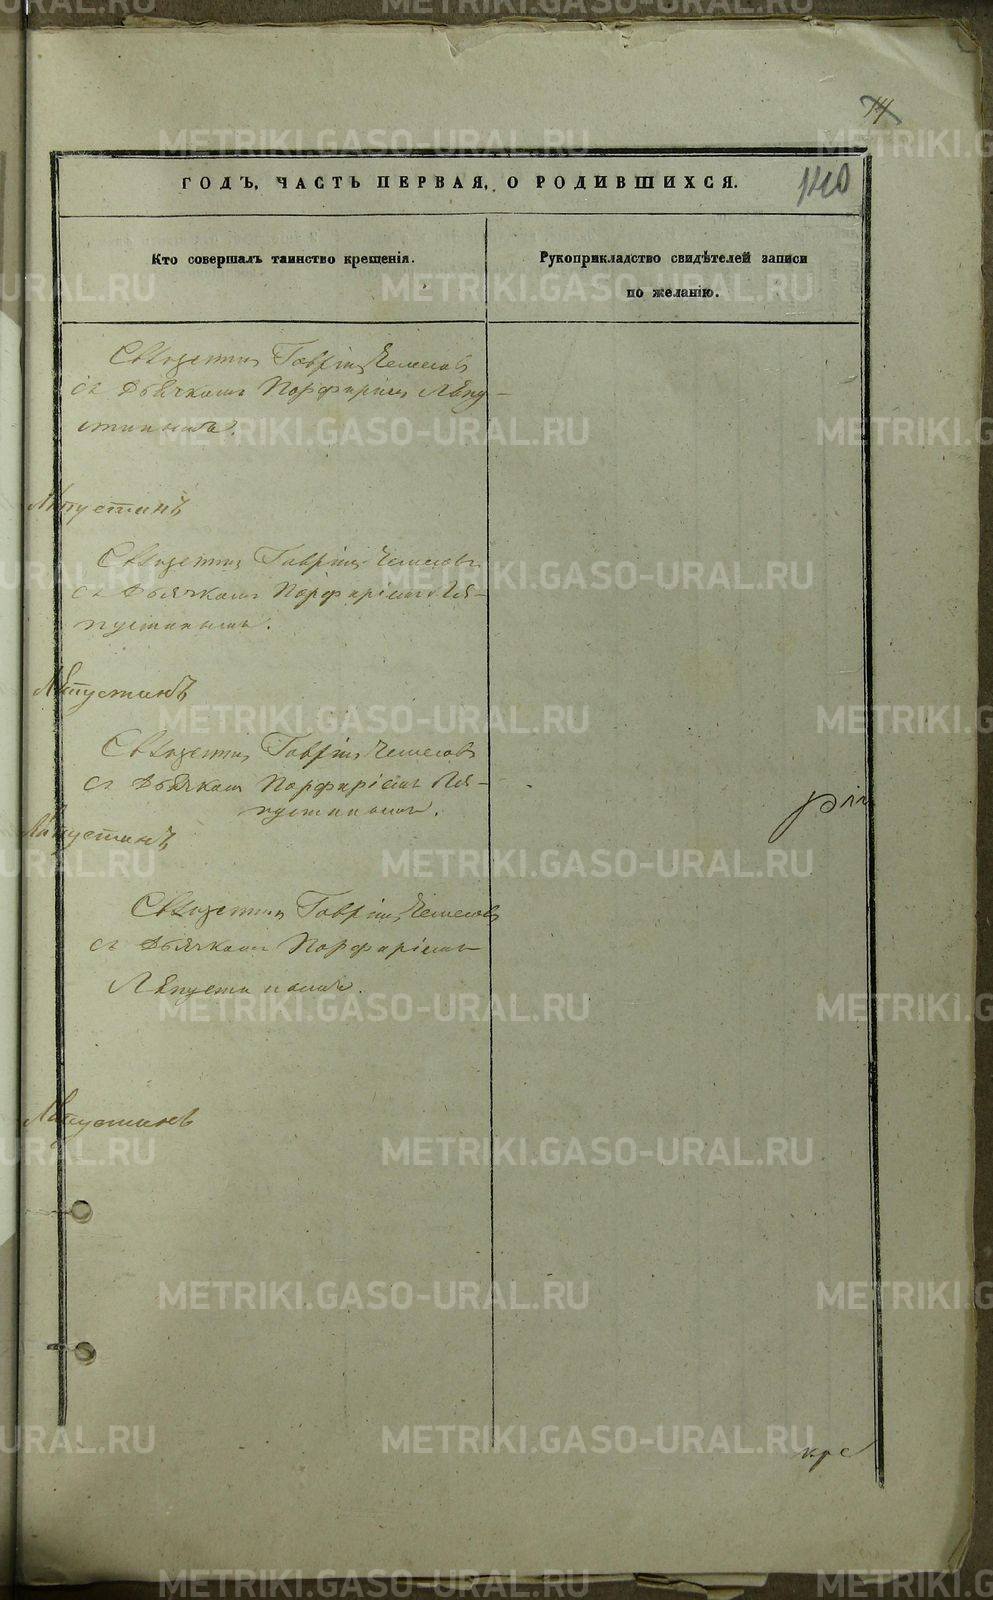 140
ГОДЪ, ЧАСТЬ ПЕРВАЯ, О РОДИВШИХСЯ.
Кто совершалъ таинство крещенія.
Рукоприкладство свидѣтелей записи
по желанію.
Священник Гавріил
съ Дьячкомъ Порфиріем Ляпу-
стинымъ.
Ляпустинъ
Священник Гавріил
съ Дьячкомъ Порфиріемъ Ля-
пустинымъ.
Ляпустинъ
Священник Гавріил
съ Дьячком Порфиріемъ Ля-
пустинымъ.
Ляпустинъ
Священник Гавріил
съ Дьячкомъ Порфиріемъ
Ляпустинымъ.
Ляпустинъ
METRIKI.GASO-URAL.RU